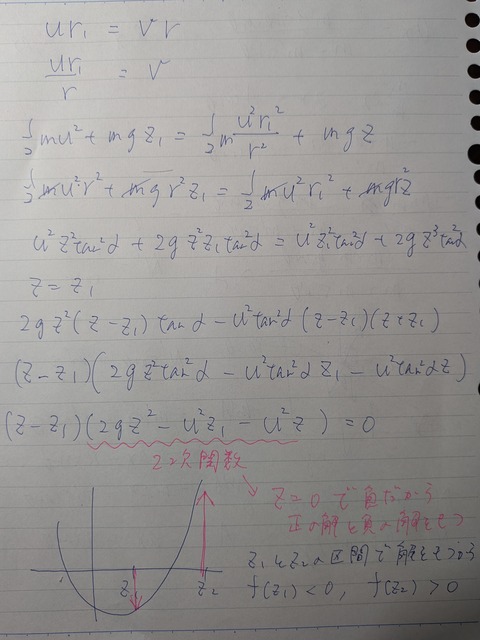 ur₁ = vr
ur₁/r = v
1/2 mu² + mgz₁ = 1/2 m u²r₁²/r² + mgz
1/2 mu²r² + mgr²z₁ = 1/2 mu²r₁² + mgr²z
u²z²tan²α + 2gz²z₁tan²α = u²z₁²tan²α + 2gz³tan²α
z = z₁
2gz²(z-z₁)tanα - u²tan²α(z-z₁)(z+z₁)
(z-z₁)(2gz²tan²α - u²tan²αz₁ - u²tan²αz)
(z-z₁)(2gz² - u²z₁ - u²z) = 0
2次関数
z=0で負だから
正の解と負の解をもつ
z₁とz₂の区間で解をもつから
f(z₁)<0, f(z₂)>0
z₁
z₂